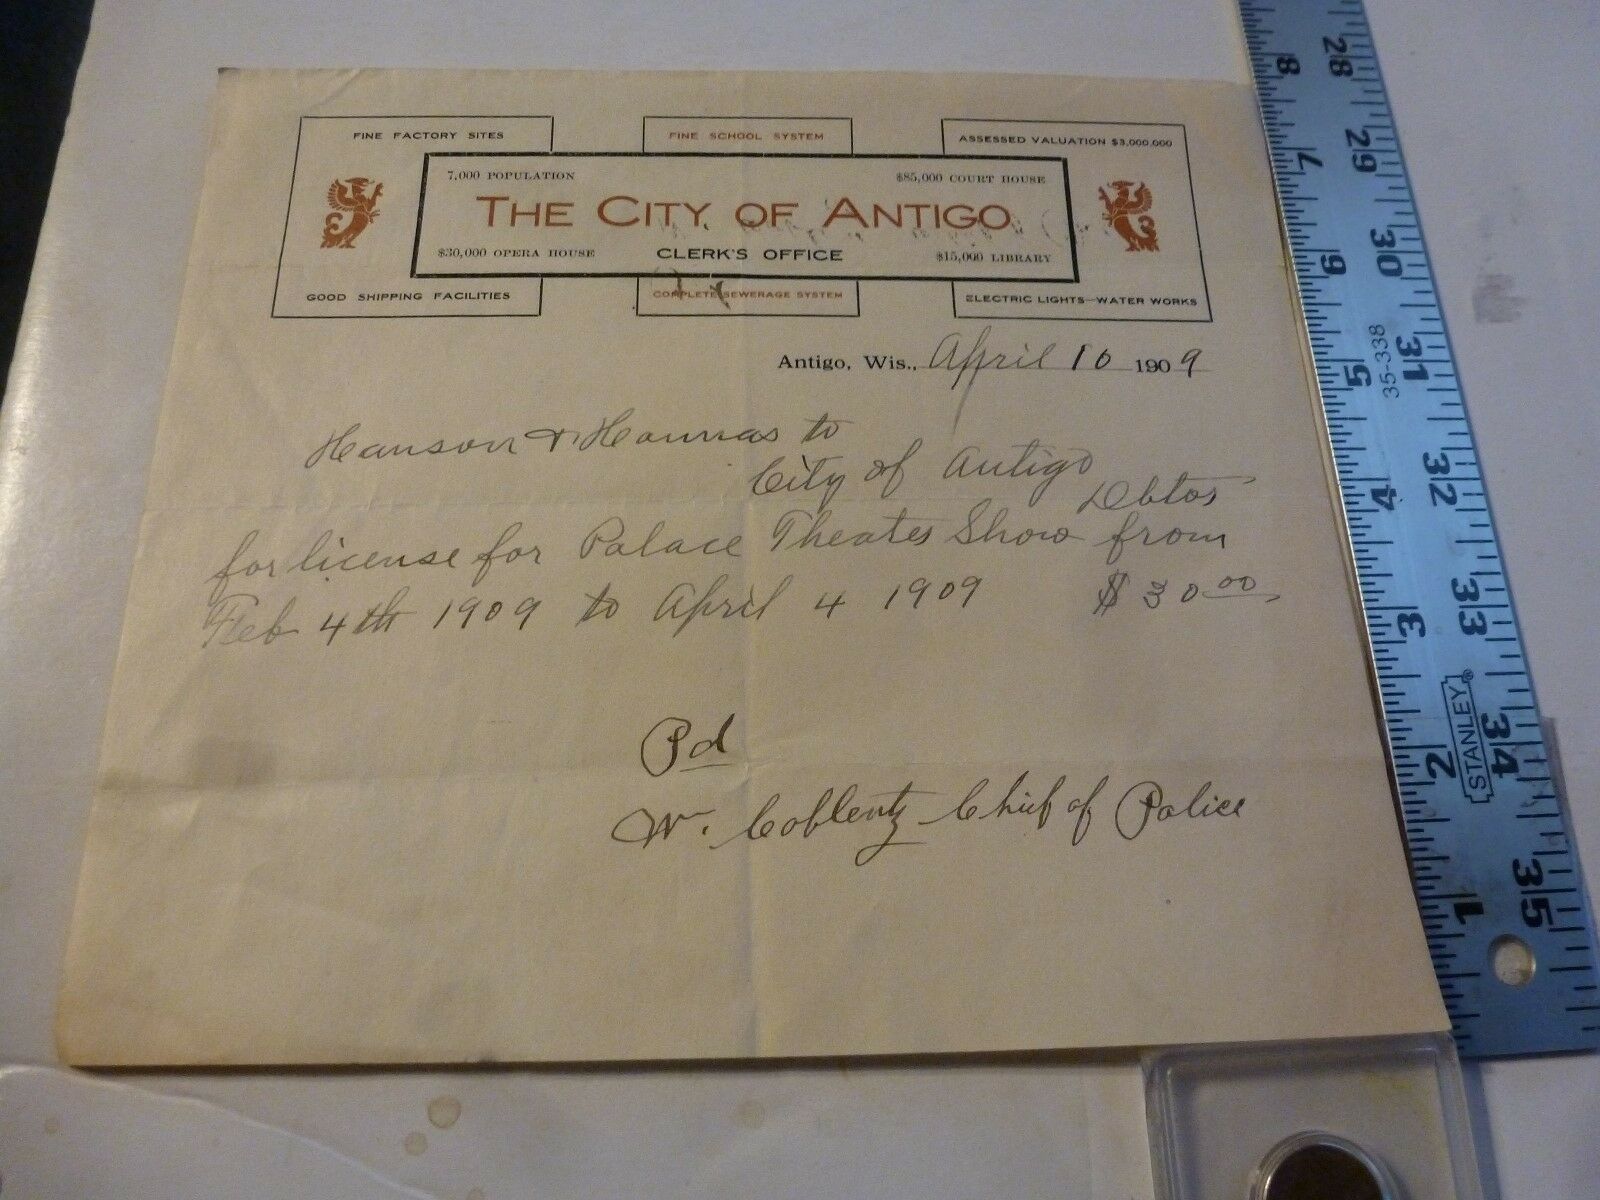 FINE FACTORY SITES
FINE SCHOOL SYSTEM
ASSESSED VALUATION $3,000,000
7,000 POPULATION
$85,000 COURT HOUSE
THE CITY OF ANTIGO
$30,000 OPERA HOUSE
CLERK'S OFFICE
$15,000 LIBRARY
GOOD SHIPPING FACILITIES
COMPLETE SEWERAGE SYSTEM
ELECTRIC LIGHTS—WATER WORKS
Antigo, Wis., April 10 1909
Hanson & Hannas to
City of Antigo
Debtos
for license for Palace Theates Show from
Feb 4th 1909 to April 4 1909 $30 00
Pd
W. Coblentz Chief of Police
28
8
29
7
30
6
31
5
35-338
32
4
33
3
34
2
STANLEY®
35
1